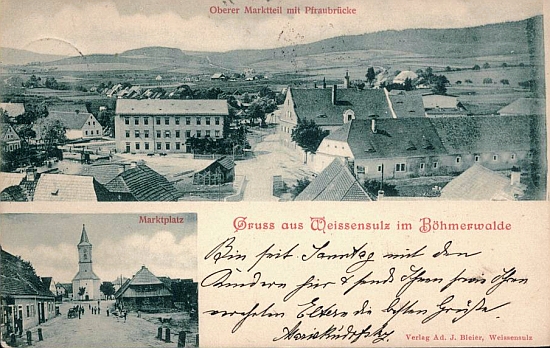 Oberer Marktteil mit Pfraubrücke
Marktplatz
Gruss aus Weissensulz im Böhmerwalde
Bin seit Sonntag mit den
Kindern hier & sende Ihnen sowie Ihren
verehrten Eltern die besten Grüße.
Verlag Ad. J. Bleier, Weissensulz